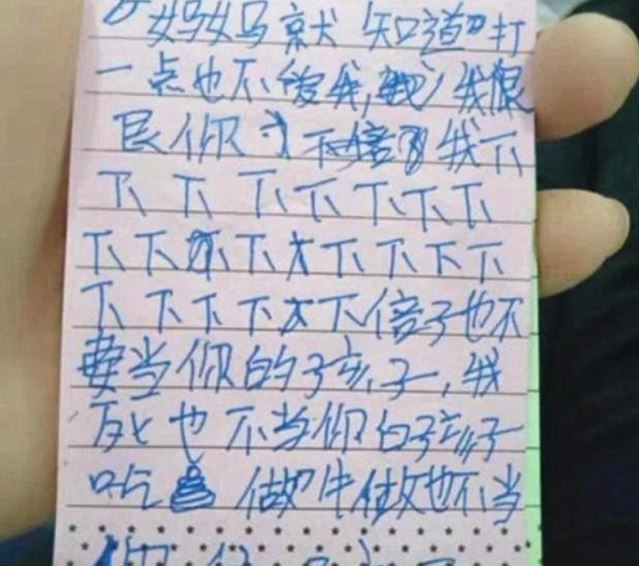 妈妈就知道打
一点也不爱我,我很
艮你我下
下下下下下下下
下下下下下下下下下
下下下下下下倍子也不
要当你的孩子,我
死也不当你的孩子
吃 做牛做也不当